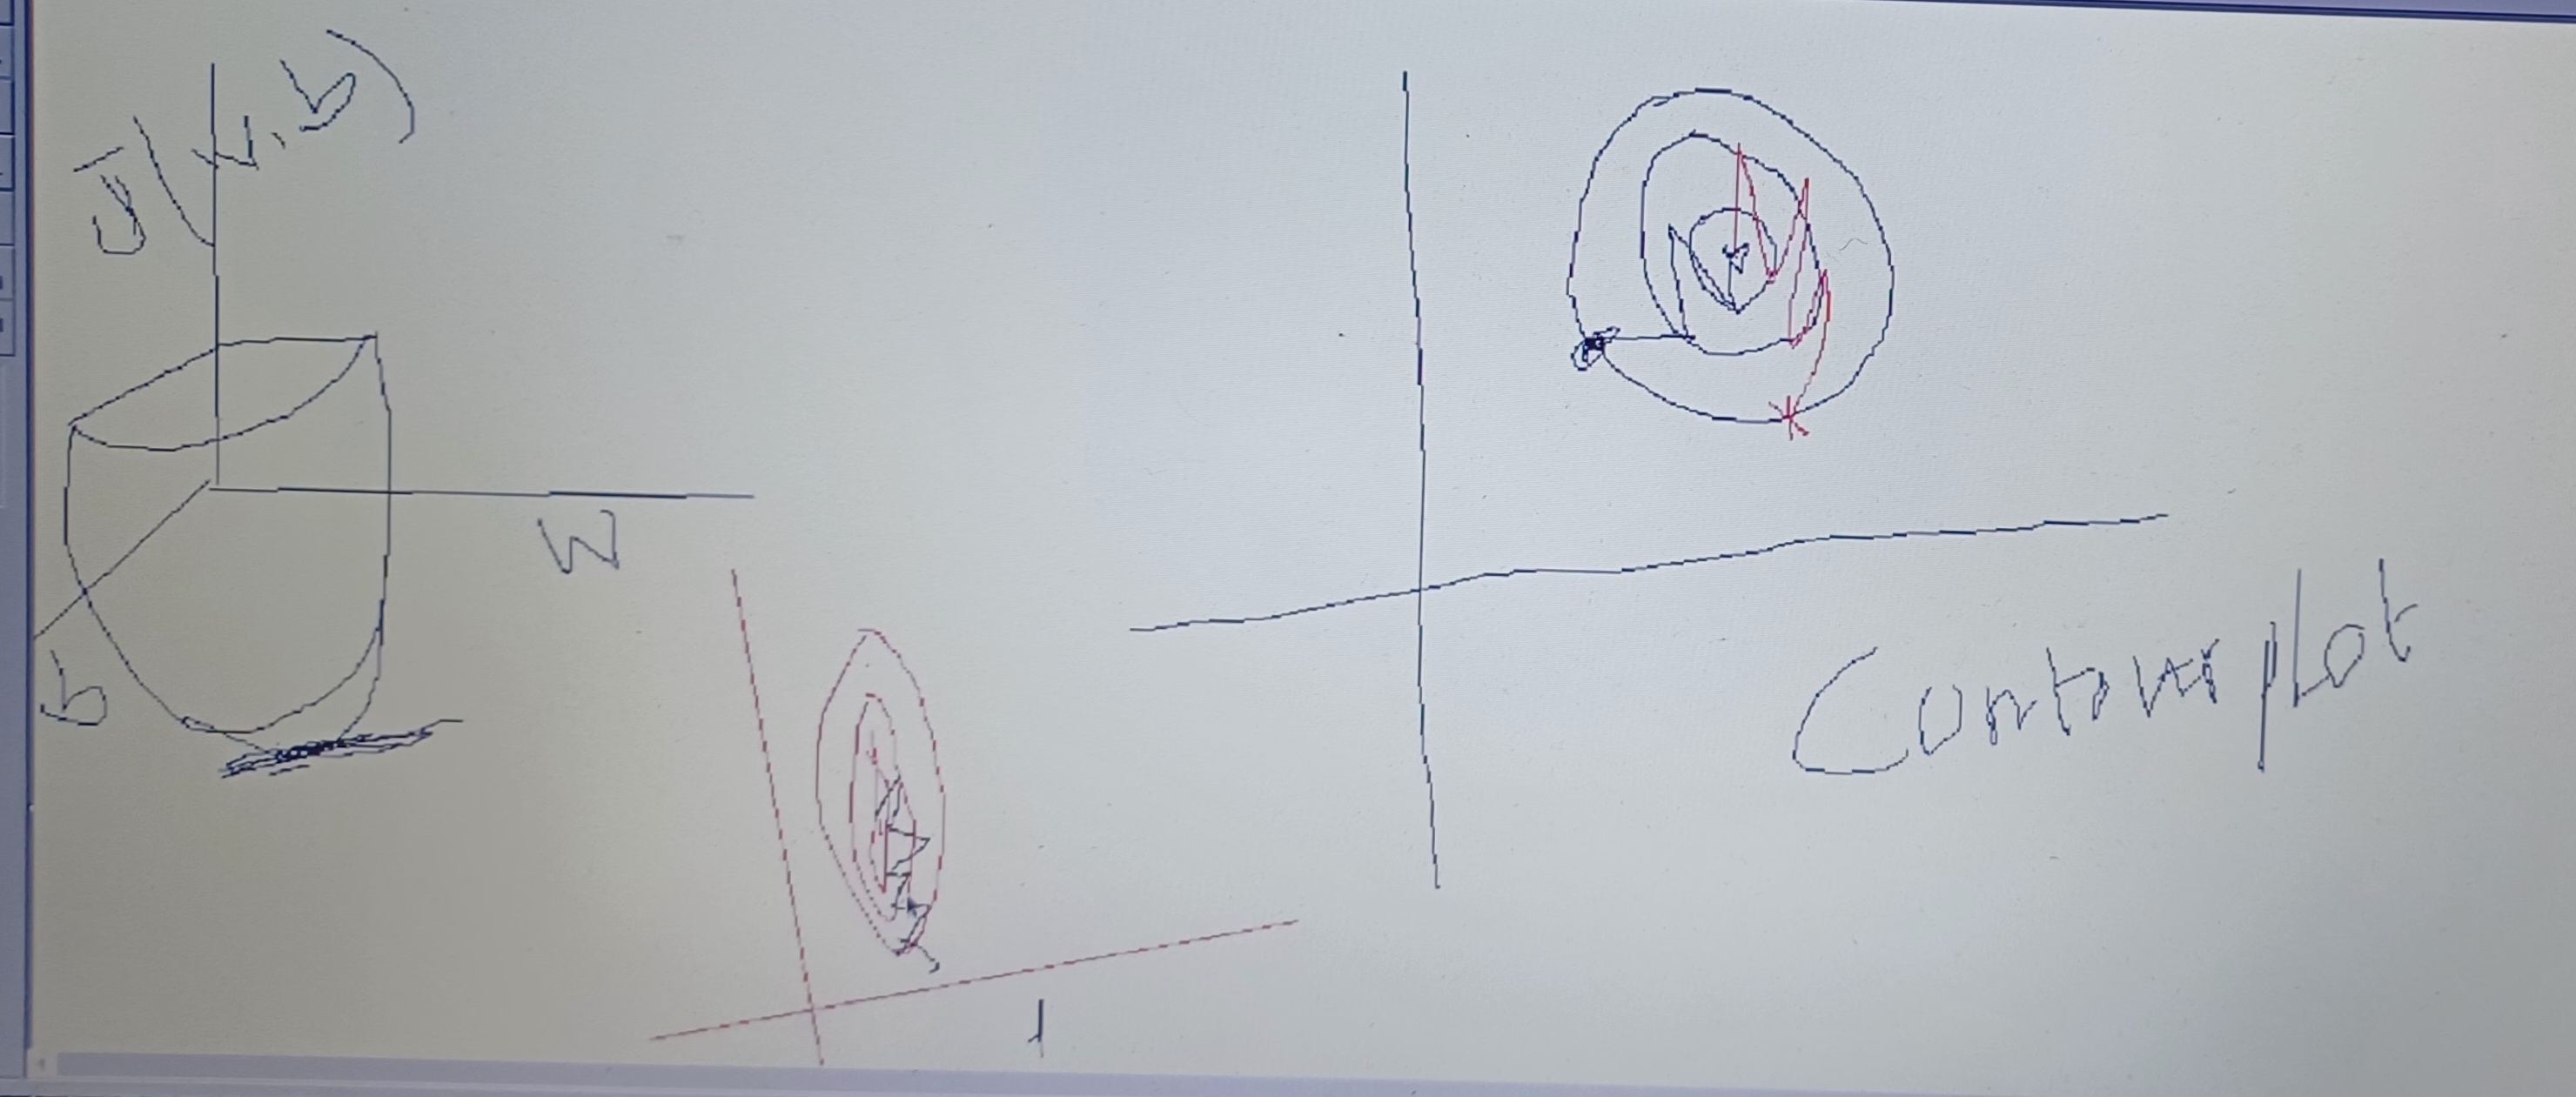 J(w,b)
w
b
Contour plot
1